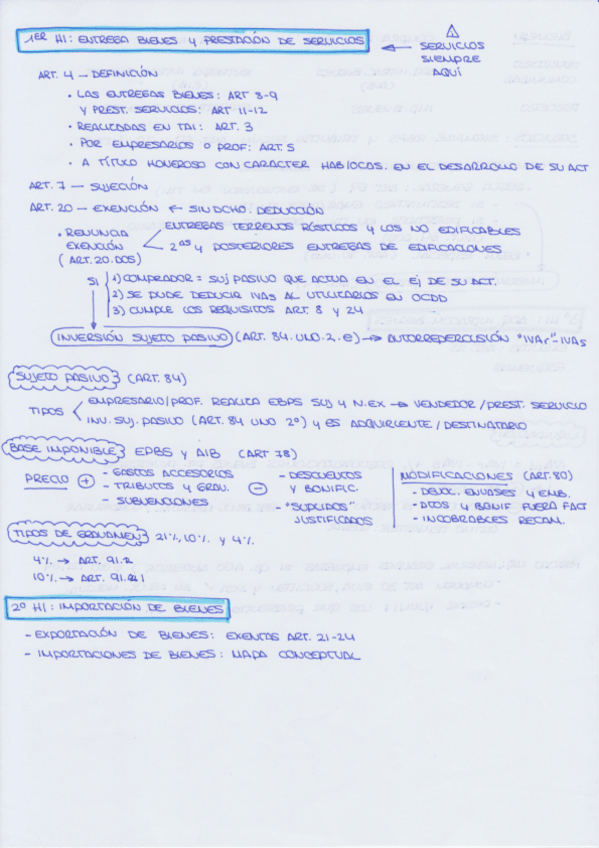 1ER HI: ENTREGA BIENES Y PRESTACIÓN DE SERVICIOS
⚠ SERVICIOS SIEMPRE AQUÍ
ART. 4 – DEFINICIÓN
• LAS ENTREGAS BIENES: ART 8-9
Y PREST. SERVICIOS: ART 11-12
• REALIZADAS EN TAI: ART. 3
• POR EMPRESARIOS O PROF: ART. 5
• A TÍTULO HONEROSO CON CARACTER HAB/OCAS. EN EL DESARROLLO DE SU ACT
ART. 7 – SUJECIÓN
ART. 20 – EXENCIÓN ← SIN DCHO. DEDUCCIÓN
• RENUNCIA EXENCIÓN (ART. 20. DOS)
ENTREGAS TERRENOS RÚSTICOS Y LOS NO EDIFICABLES
2ªS Y POSTERIORES ENTREGAS DE EDIFICACIONES
SI
1) COMPRADOR = SUJ PASIVO QUE ACTUA EN EL EJ DE SU ACT.
2) SE PUDE DEDUCIR IVAS AL UTILITARIOS EN OCDD
3) CUMPLE LOS REQUISITOS ART. 8 Y 24
INVERSIÓN SUJETO PASIVO (ART. 84. UNO. 2. e) → AUTORREPERCUSIÓN "IVAr"-IVAs
SUJETO PASIVO (ART. 84)
TIPOS
EMPRESARIO/PROF. REALIZA EBPS SUJ Y N.EX → VENDEDOR / PREST. SERVICIO
INV. SUJ. PASIVO (ART. 84 UNO 2º) Y ES ADQUIRIENTE / DESTINATARIO
BASE IMPONIBLE EPBS Y AIB (ART 78)
PRECIO +
- GASTOS ACCESORIOS
- TRIBUTOS Y GRAV.
- SUBVENCIONES
-
- DESCUENTOS Y BONIFIC.
- "SUPLIDOS" JUSTIFICADOS
MODIFICACIONES (ART. 80)
- DEVOL. ENVASES Y EMB.
- DTOS Y BONIF FUERA FACT
- INCOBRABLES RECLAM.
TIPOS DE GRAVAMEN 21%, 10% Y 4%
4% → ART. 91.2
10% → ART. 91.1
2º HI: IMPORTACIÓN DE BIENES
- EXPORTACIÓN DE BIENES: EXENTAS ART. 21-24
- IMPORTACIONES DE BIENES: MAPA CONCEPTUAL